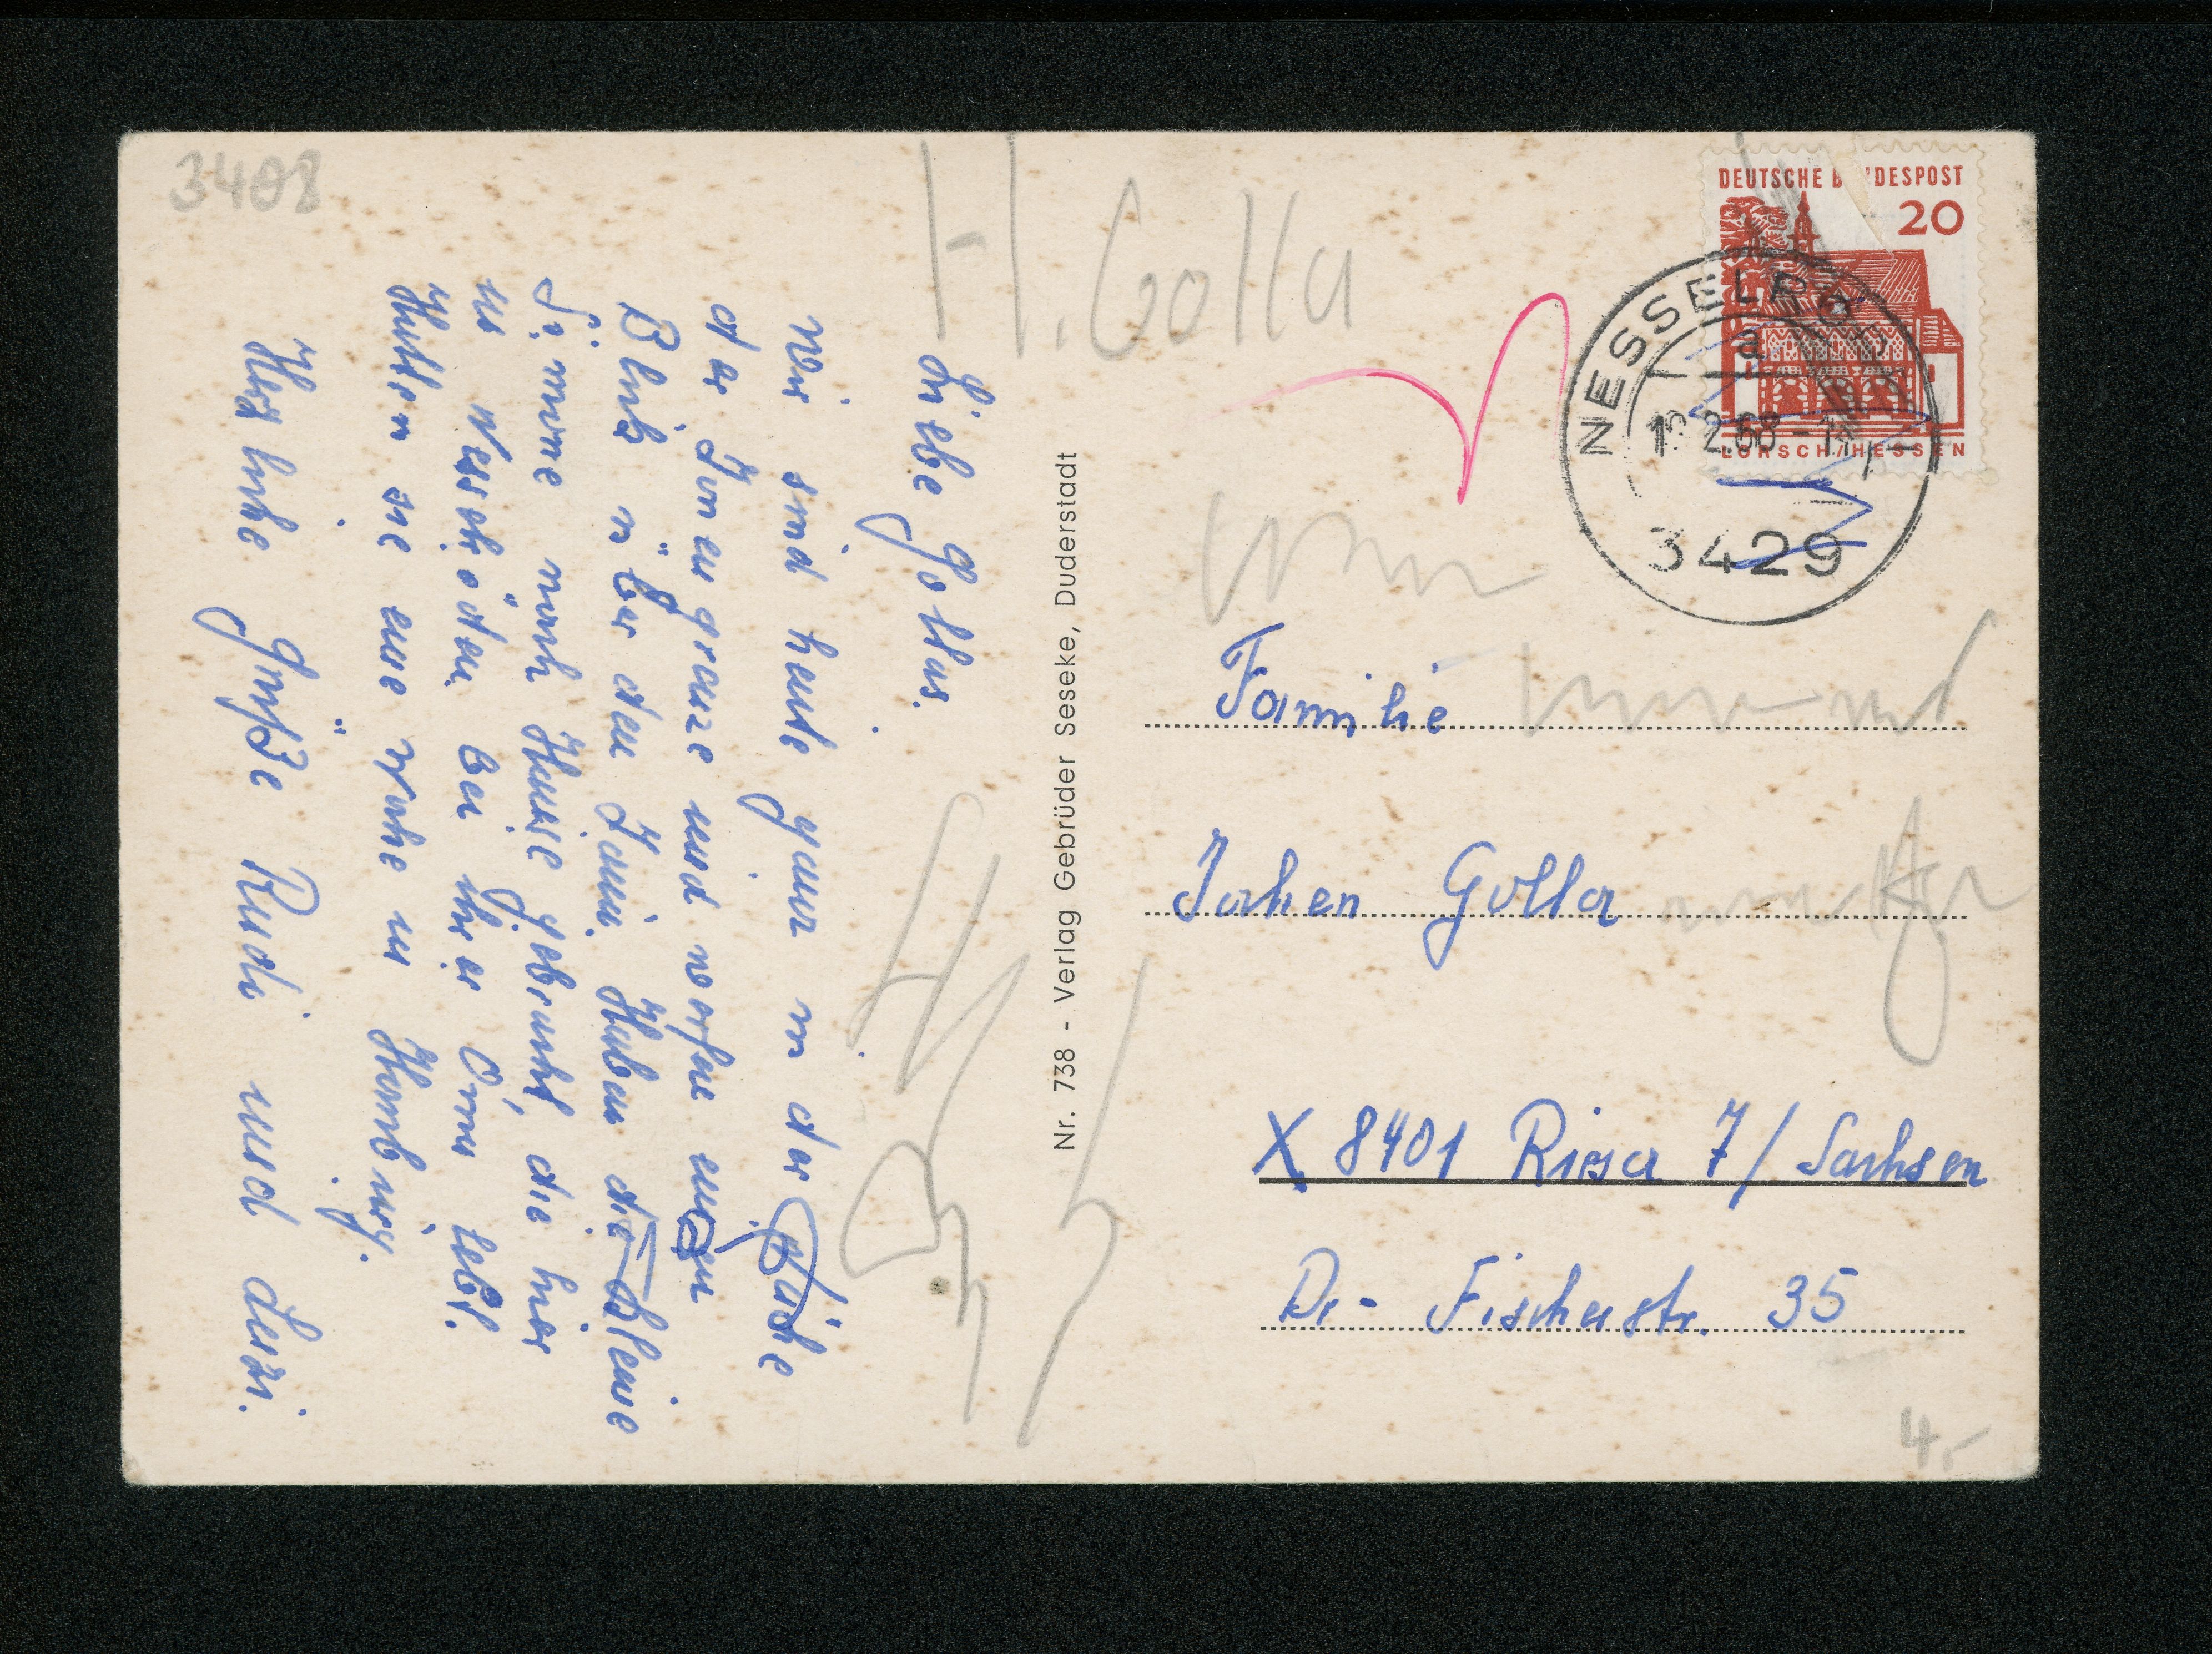 3408
H. Golla
Liebe Gollas.
Wir sind heute ganz in der Nähe
der Zonengrenze und werfen einen
Blick über den Zaun. Haben die kleine
Simone nach Hause gebracht, die hier
in Nesselröden bei ihrer Oma lebt.
Hatten sie eine Woche in Homburg.
Herzliche Grüße Rudi und Lusi.
Nr. 738 - Verlag Gebrüder Seseke, Duderstadt
DEUTSCHE BUNDESPOST
20
LORSCH/HESSEN
NESSELRÖDEN
a
2.68
3429
Familie
Jochen Golla
X 8401 Riesa 7/Sachsen
Dr.- Fischerstr. 35
4,-